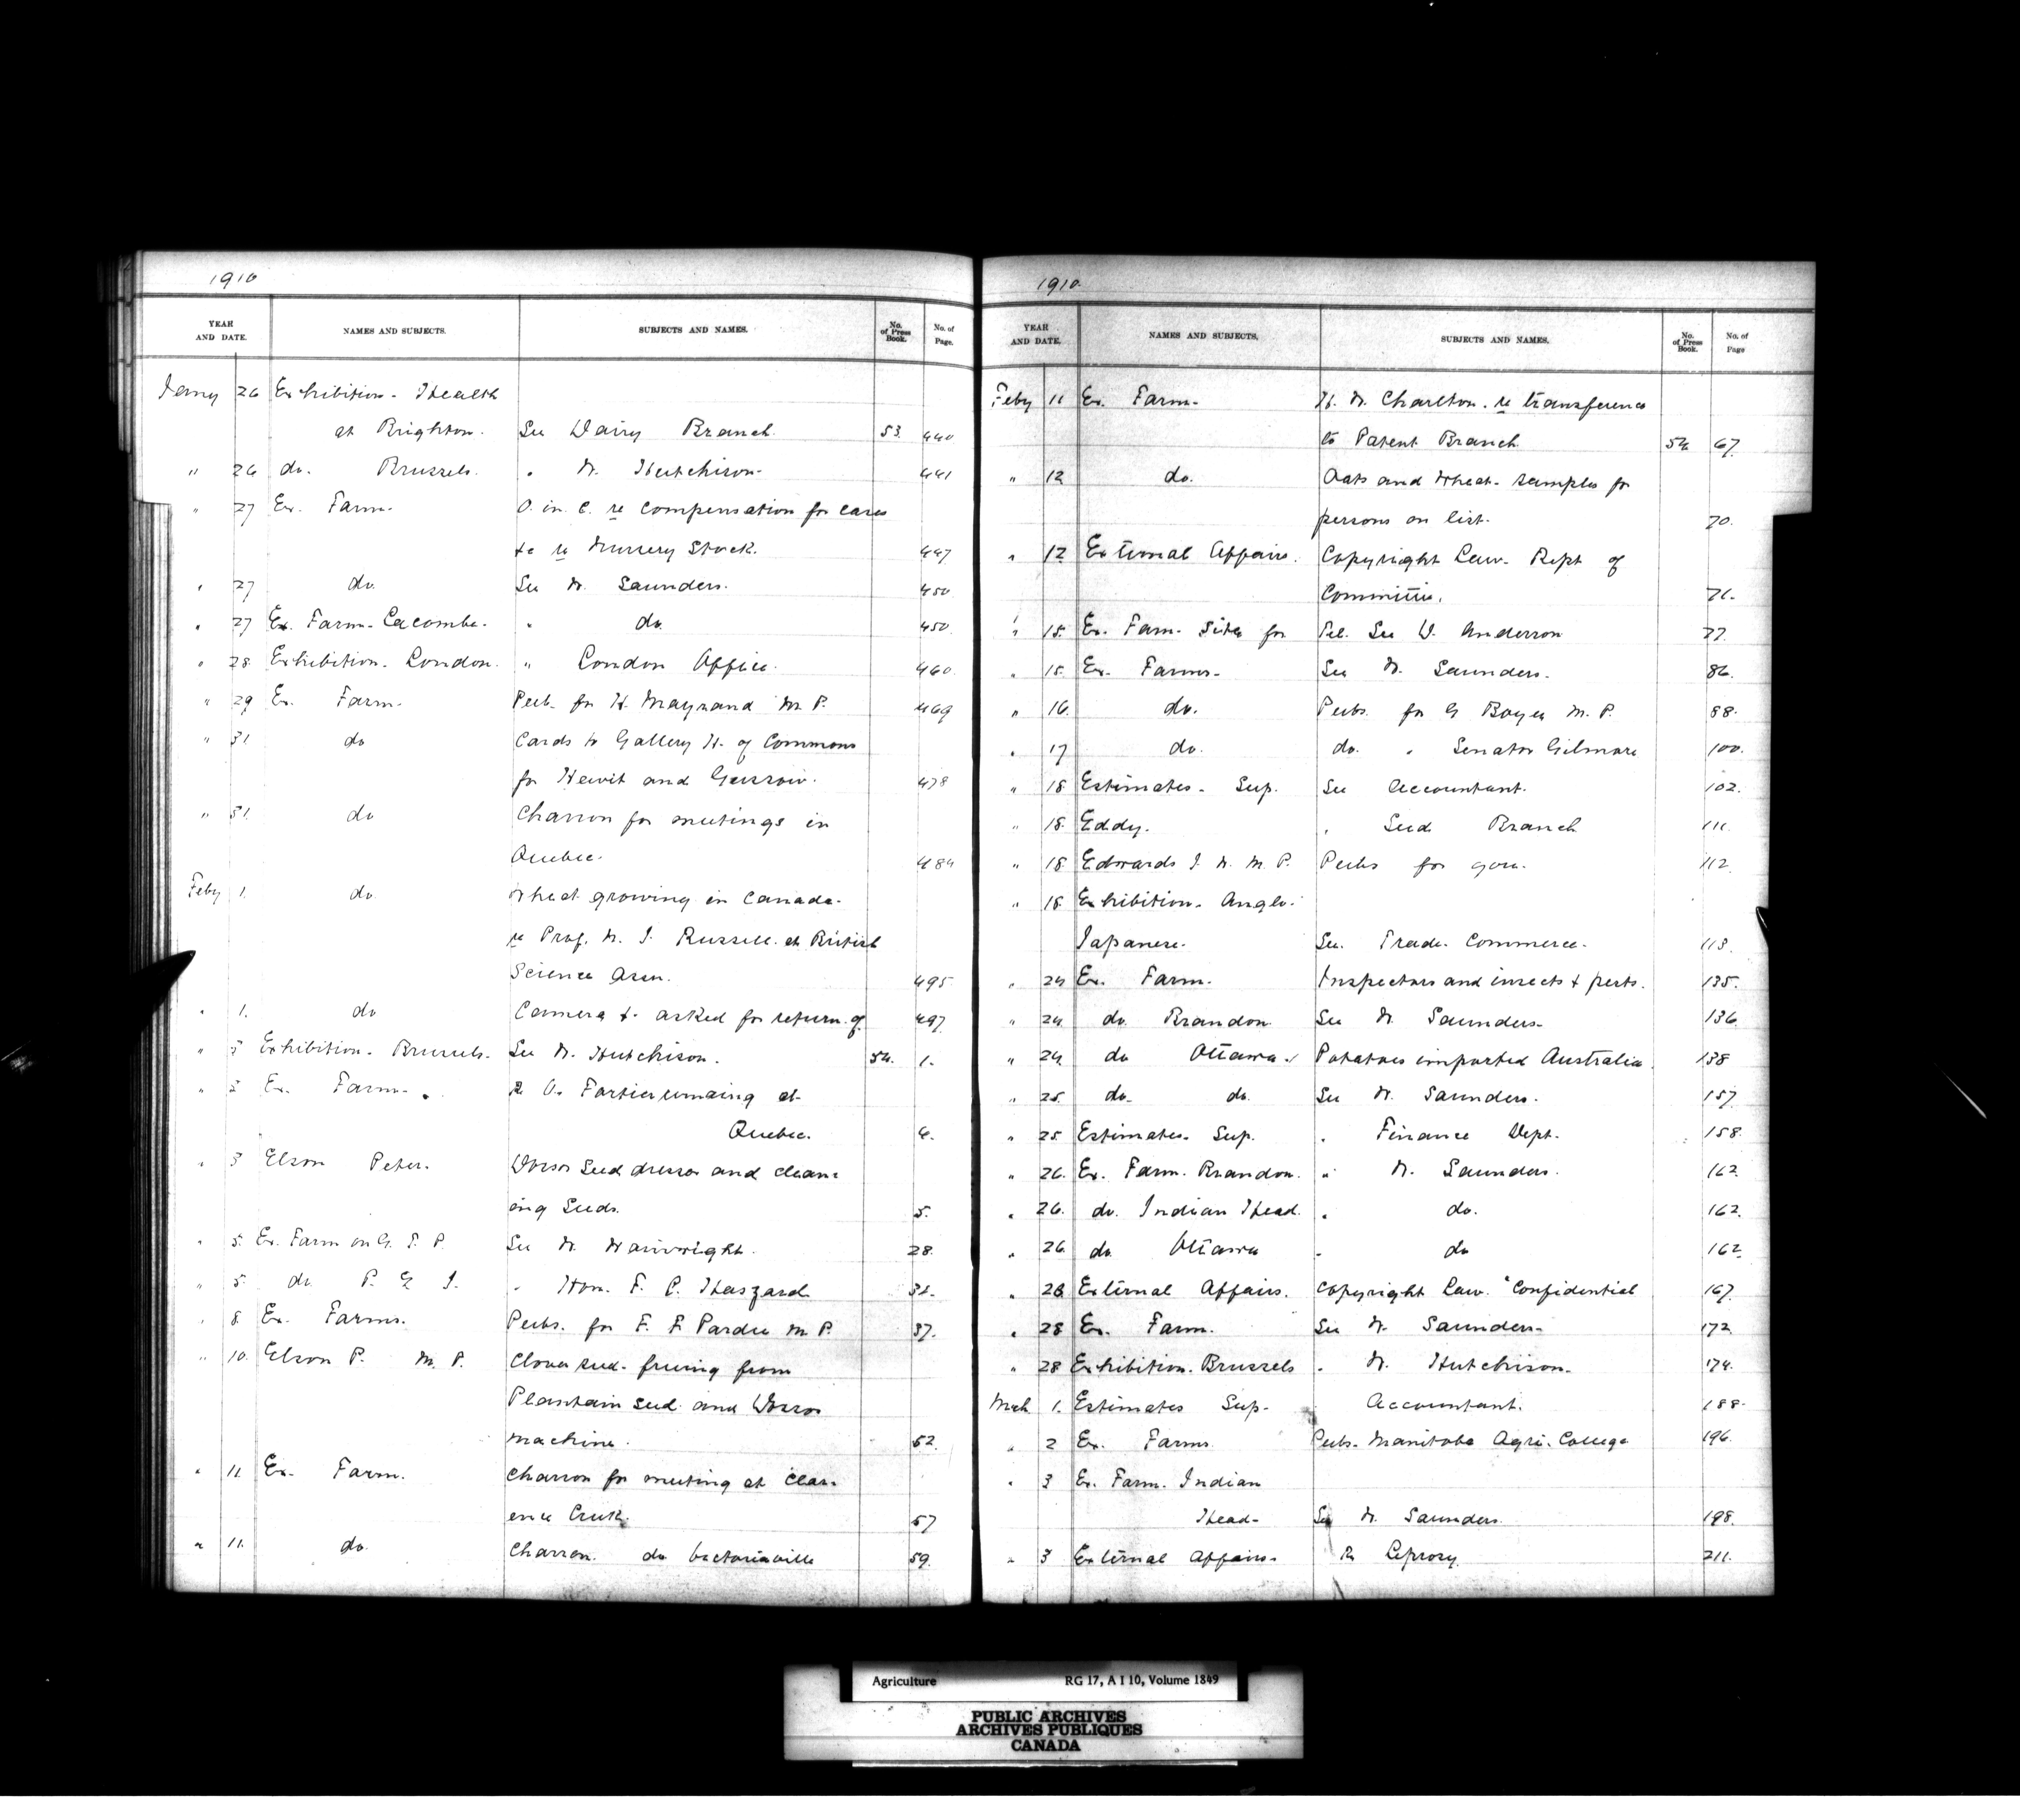 1910
YEAR AND DATE. NAMES AND SUBJECTS. SUBJECTS AND NAMES. No. of Press Book. No. of Page.
Jany 26 Exhibition - Health
at Brighton. See Dairy Branch. 53. 440
" 26 do. Brussels. " W. Hutchison. 441
" 27 Ex. Farm. O. in C. re compensation for cases
&c re Nursery Stock. 447
" 27 do. See W. Saunders. 450
" 27 Ex. Farm - Lacombe. " do 450
" 28 Exhibition. London. " London Office. 460
" 29 Ex. Farm. Pub. for H. Mayrand M.P. 469
" 31 do Cards to Gallery H. of Commons
for Hewit and Gussow. 478
" 31 do Charron for meetings in
Quebec. 484
Feby 1. do Wheat growing in Canada.
re Prof. W. J. Russell at British
Science Assn. 495
" 1. do Camera &c asked for return of 497
" 3 Exhibition - Brussels. See W. Hutchison. 54. 1.
" 3 Ex. Farm. Re O. Fortier remaing at
Quebec. 4.
" 3 Elson Peter. seed dresser and clean=
ing Seeds. 5.
" 5. Ex. Farm on G. T. P. See W. Wainwright. 28.
" 5. do P. E I. " Hon. F. L. Haszard
" 8 Ex. Farms. Pubs. for F. F. Pardee M.P. 37.
" 10. Elson P. M. P. Clover seed - freeing from
Plantain seed and
machine. 52.
" 11 Ex. Farm. Charron for meeting at Clar=
ence Creek. 57
" 11. do. Charron. do Victoriaville 59.
1910.
YEAR AND DATE. NAMES AND SUBJECTS. SUBJECTS AND NAMES. No. of Press Book. No. of Page
Feby 11 Ex. Farm. H. W. Charlton. re transference
to Patent Branch 54 67.
" 12 do. Oats and Wheat - samples for
persons on list. 70.
" 12 External Affairs. Copyright Law. Rept of
Committee. 71.
" 15. Ex. Farm. Sites for See W. Anderson 77.
" 15. Ex. Farms. See W. Saunders. 86.
" 16. do. Pubs. for G Boyer M.P. 88.
" 17 do. do. " Senator Gilmore 100.
" 18 Estimates - Sup. See Accountant. 102.
" 18. Eddy. " Seed Branch 111.
" 18 Edwards J. W. M.P. Pubs for gov. 112.
" 18 Exhibition - Anglo-
Japanese. See. Trade. Commerce. 113.
" 24 Ex. Farm. Inspectors and insects & pests. 135.
" 24. do. Brandon See W. Saunders. 136.
" 24. do Ottawa. Potatoes imported Australia. 138
" 25. do. do. See W. Saunders. 157.
" 25. Estimates. Sup. " Finance Dept. 158.
" 26. Ex. Farm. Brandon. " W. Saunders. 162.
" 26. do. Indian Head. " do. 162.
" 26. do. Ottawa " do 162.
" 28 External Affairs. Copyright Law. "Confidential 167.
" 28 Ex. Farm. See W. Saunders. 172.
" 28 Exhibition. Brussels " W. Hutchison. 174.
Mch 1. Estimates Sup. Accountant. 188.
" 2 Ex. Farms Pubs. Manitoba Agri. College 196.
" 3 Ex. Farm. Indian
Head. See W. Saunders. 198.
" 3 External Affairs. Re Leprosy. 211.
Agriculture RG 17, A I 10, Volume 1849
PUBLIC ARCHIVES
ARCHIVES PUBLIQUES
CANADA